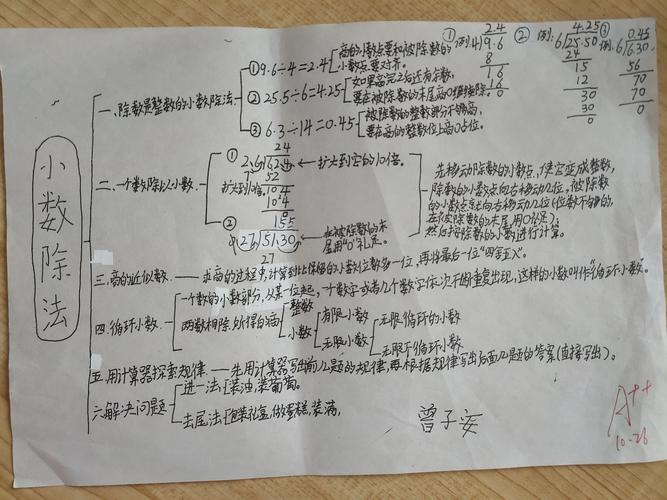 小数除法
一、除数是整数的小数除法
①9.6÷4=2.4
商的小数点要和被除数的
小数点要对齐。
②25.5÷6=4.25
如果除完之后还有余数,
要在被除数的末尾商0继续除。
③6.3÷14=0.45
被除数的整数部分不够商,
要在商的整数位上商0占位。
①例:
2.4
4)9.6
8
1.6
1.6
0
②例:
4.25
6)25.50
24
15
12
30
30
0
③例:
0.45
6.30
56
70
70
0
二、一个数除以小数
①
24
2.6)62.4
扩大到它的10倍。
扩大到10倍
52
104
104
0
②
155
在被除数的末
尾用"0"补足。
27
先移动除数的小数点,使它变成整数,
除数的小数点向右移动几位,被除数
的小数点就向右移动几位(位数不够的,
在被除数的末尾用0补足);
然后按除数的小数进行计算。
三、商的近似数
求商的过程中,计算到比保留的小数位数多一位,再将最后一位"四舍五入"。
四、循环小数
一个数的小数部分,从某一位起,一个数字或者几个数字依次不断重复出现,这样的小数叫作"循环小数"。
两数相除所得的商
整数
小数
有限小数
无限小数
无限循环的小数
无限不循环小数
五、用计算器探索规律
先用计算器写出前几题的规律,再根据规律写出后面几题的答案(直接写出)。
六、解决问题
进一法[装油,装葡萄。
去尾法[包装礼盒,做蛋糕,装满,
A++
10-26